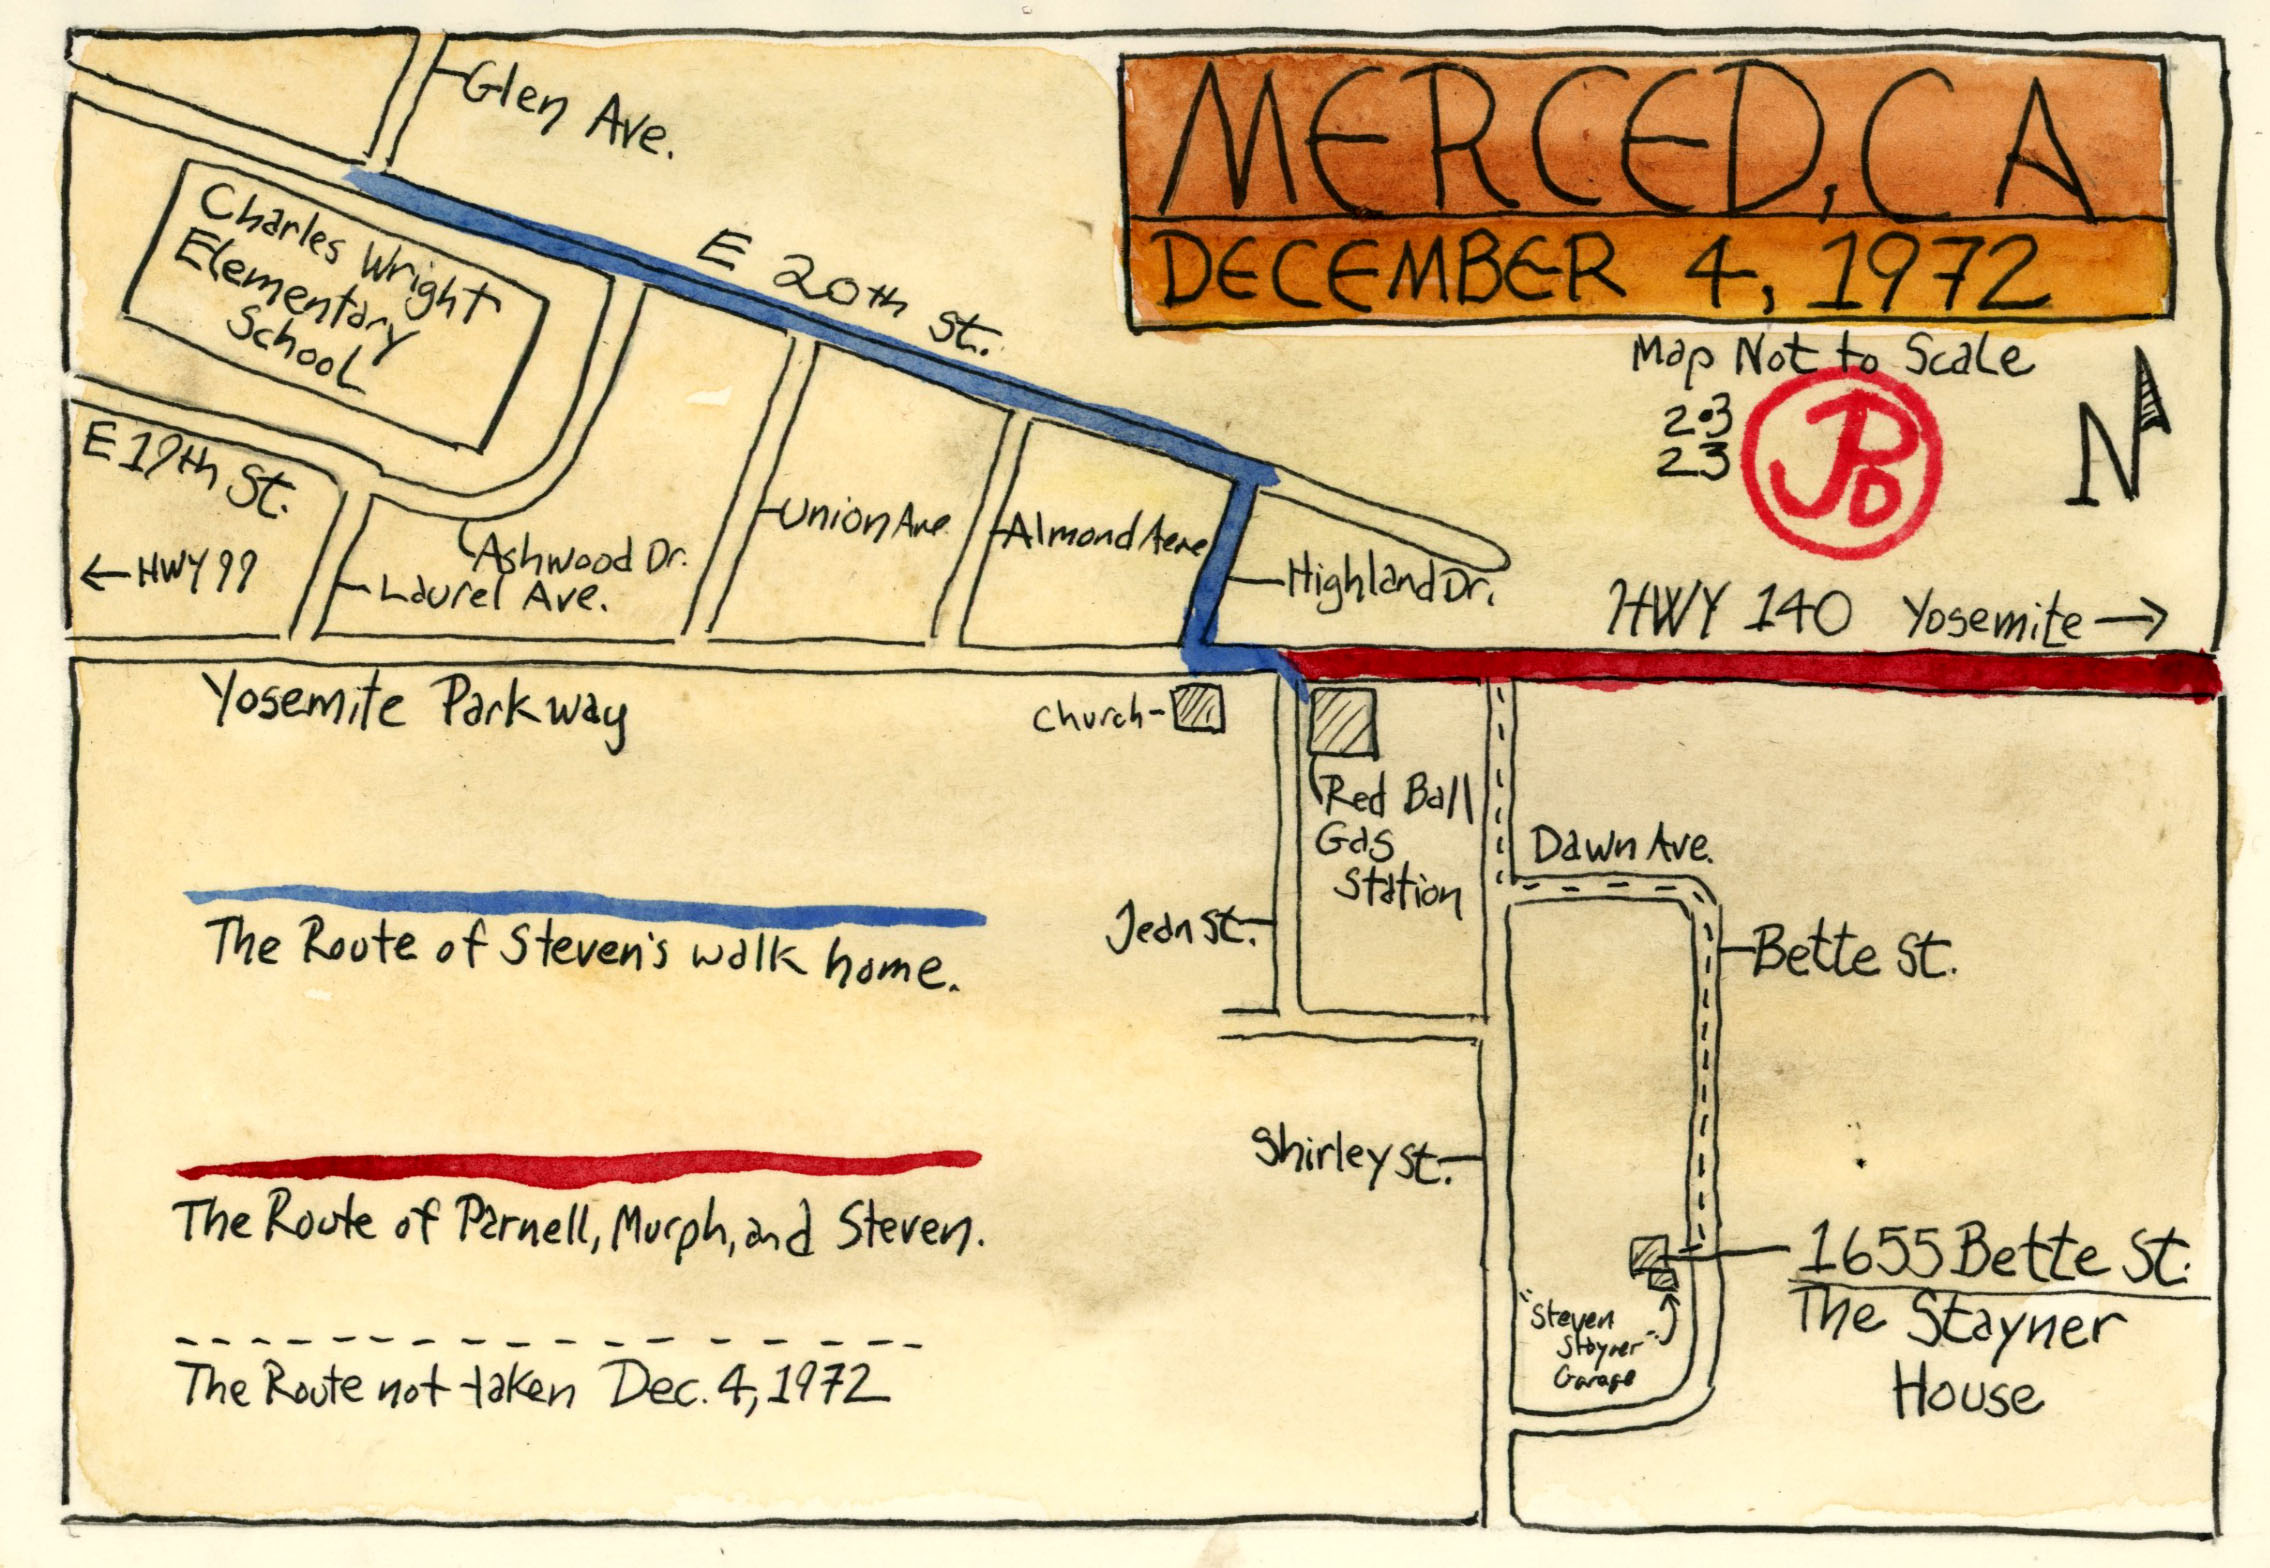 MERCED, CA
DECEMBER 4, 1972
Map Not to Scale
2.3
23
JPD
N
Glen Ave.
Charles Wright
Elementary
School
E 20th St.
E 19th St.
← HWY 99
Ashwood Dr.
Laurel Ave.
Union Ave
Almond
Highland Dr.
HWY 140 Yosemite →
Yosemite Parkway
Church
Red Ball
Gas
Station
Dawn Ave.
Jean St.
Bette St.
The Route of Steven's walk home.
Shirley St.
The Route of Parnell, Murph, and Steven.
1655 Bette St.
The Stayner
House
"Steven
Stayner"
Garage
The Route not taken Dec. 4, 1972